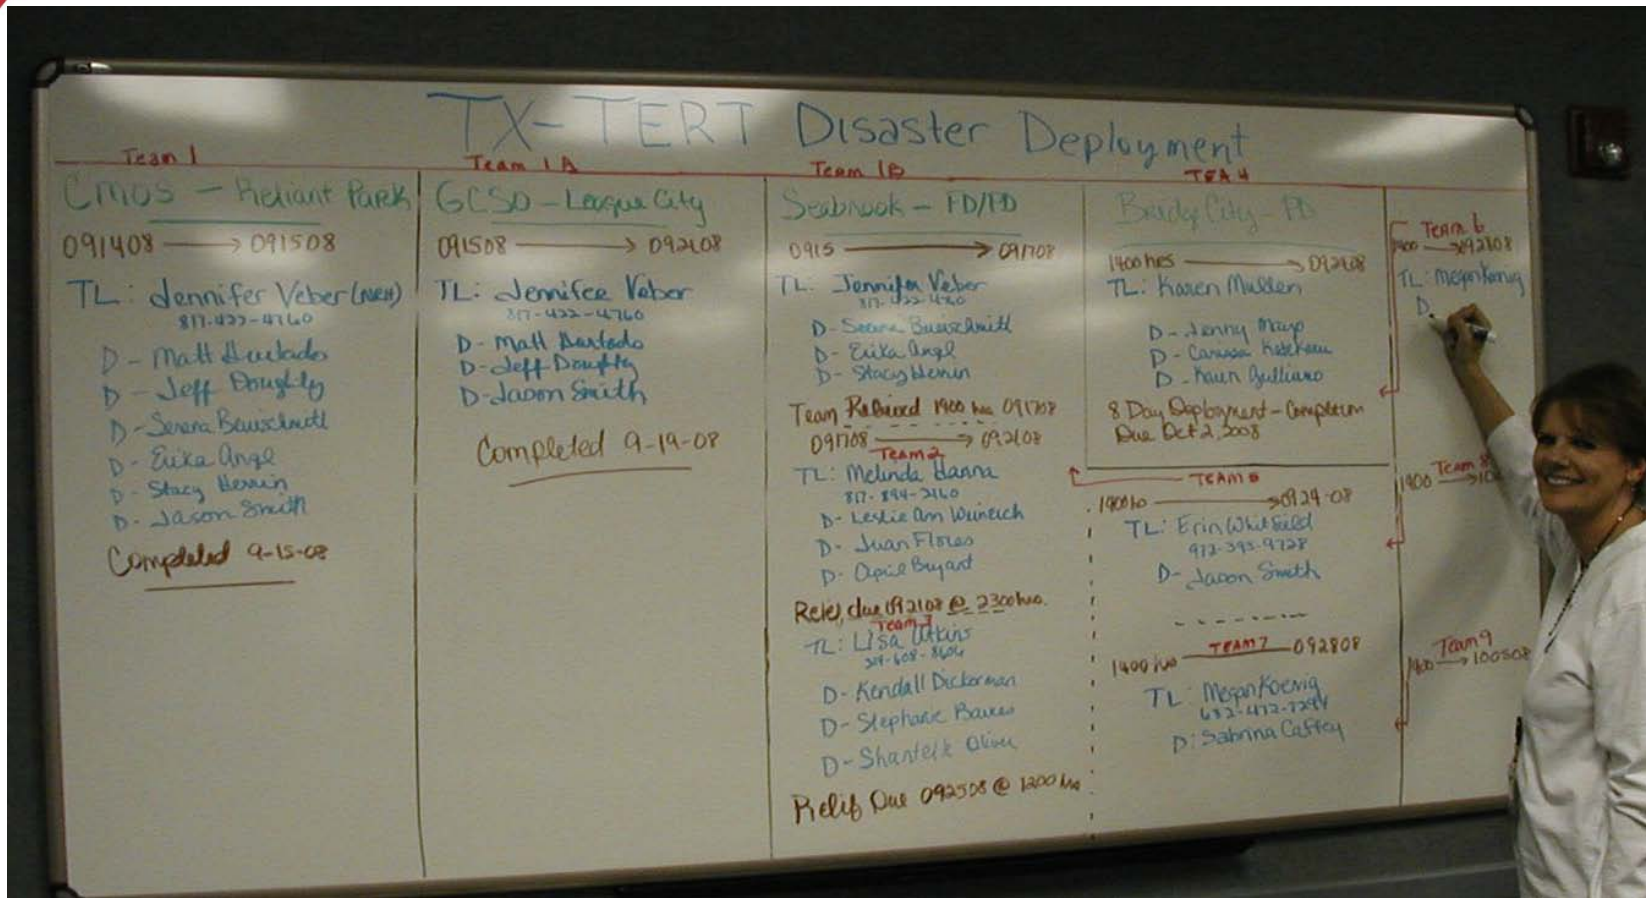 TX-TERT Disaster Deployment
Team 1
CMOS - Reliant Park
091408 → 091508
TL: Jennifer Veber (NRH)
817-422-4760
D - Matt Hurtado
D - Jeff Doughty
D - Serena
D - Erika Angel
D - Stacy Herrin
D - Jason Smith
Completed 9-15-08
Team 1A
GCSO - League City
091508 → 092108
TL: Jennifer Veber
817-422-4760
D - Matt Hurtado
D - Jeff Doughty
D - Jason Smith
Completed 9-19-08
Team 1B
Seabrook - FD/PD
0915 → 091708
TL: Jennifer Veber
817-422-4760
D - Serena
D - Erika Angel
D - Stacy Herrin
Team Relieved 1900 hrs 091708
091708 → 092108
Team 2
TL: Melinda Hanna
817-894-2160
D - Leslie Ann Weinerch
D - Juan Flores
D - April Bryant
due 092108 @ 2300 hrs.
Team 3
TL: Lisa Atkins
D - Kendall Dickerman
D - Stephanie
D - Shantelle Oliver
Relif Due 092508 @ 1200 hrs
TEA 4
Bridge City - PD
1400 hrs → 092908
TL: Karen Mullen
D - Jenny Mayo
D - Carissa
D - Karen Gulliano
8 Day Deployment - Completion
Due Oct 2, 2008
TEAM 5
→ 0924-08
TL: Erin Whitfield
972-393-9728
D - Jason Smith
TEAM 7
1400 hrs 092808
TL: Megan Koenig
682-472-7294
D: Sabrina Caffey
Team 6
1400 → 092808
TL: Megan Koenig
D
Team 8
1400 → 10
Team 9
1400 → 100508